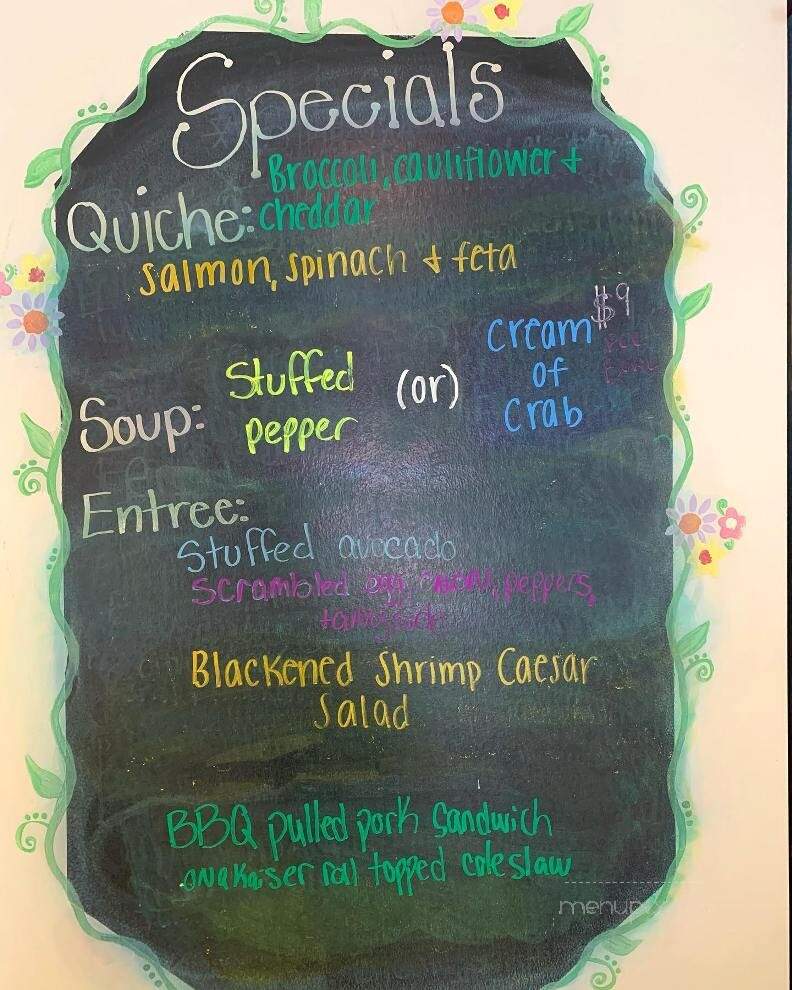 Specials
Broccoli, cauliflower &
Quiche: cheddar
salmon, spinach & feta
$9
cream
Stuffed (or) of
Soup: pepper Crab
Entree:
Stuffed avocado
Scrambled egg, peppers,
Blackened Shrimp Caesar
Salad
BBQ pulled pork sandwich
on a Kaiser roll topped coleslaw
menup